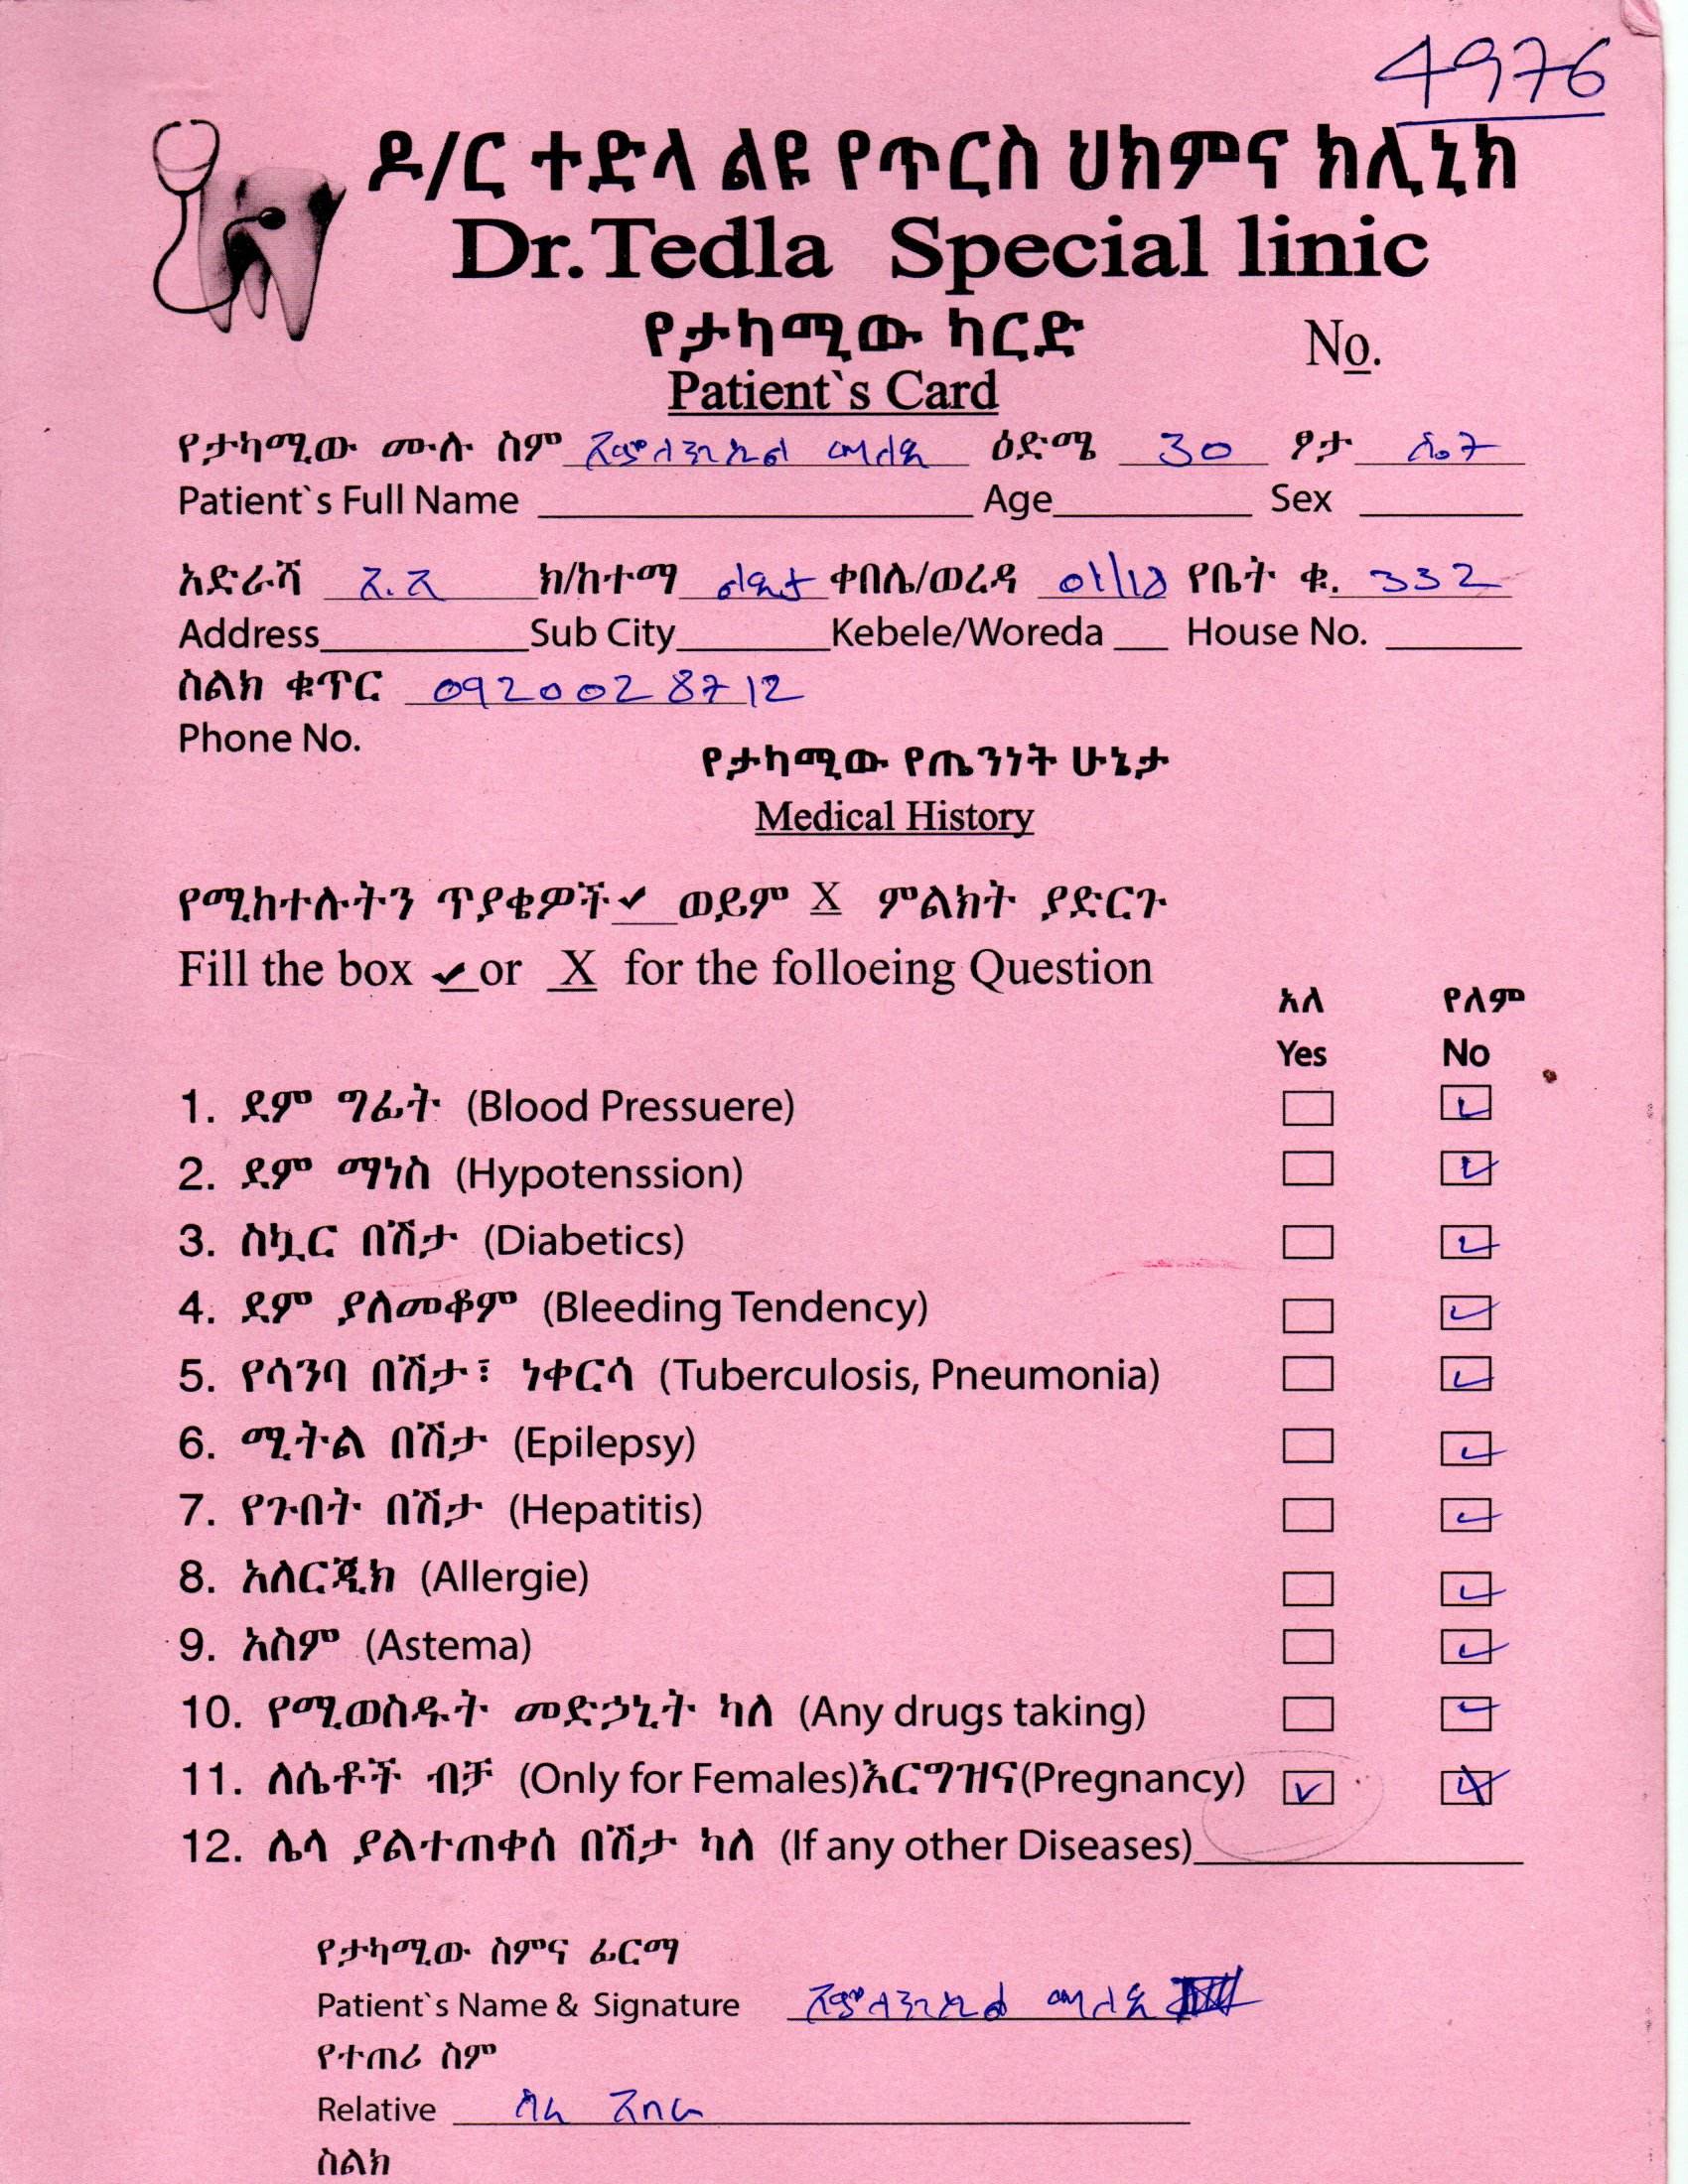 4976
ዶ/ር ተድላ ልዩ የጥርስ ህክምና ክሊኒክ
Dr.Tedla Special linic
የታካሚው ካርድ
No.
Patient`s Card
የታካሚው ሙሉ ስም ዕድሜ 30 ፆታ ሴት
Patient`s Full Name Age Sex
አድራሻ አ.አ ክ/ከተማ ልደታ ቀበሌ/ወረዳ 01/18 የቤት ቁ. 332
Address Sub City Kebele/Woreda House No.
ስልክ ቁጥር 0920028712
Phone No.
የታካሚው የጤንነት ሁኔታ
Medical History
የሚከተሉትን ጥያቄዎች✔ ወይም X ምልክት ያድርጉ
Fill the box ✔ or X for the folloeing Question
አለ የለም
Yes No
1. ደም ግፊት (Blood Pressuere)
2. ደም ማነስ (Hypotenssion)
3. ስኳር በሽታ (Diabetics)
4. ደም ያለመቆም (Bleeding Tendency)
5. የሳንባ በሽታ፣ ነቀርሳ (Tuberculosis, Pneumonia)
6. ሚትል በሽታ (Epilepsy)
7. የጉበት በሽታ (Hepatitis)
8. አለርጂክ (Allergie)
9. አስም (Astema)
10. የሚወስዱት መድኃኒት ካለ (Any drugs taking)
11. ለሴቶች ብቻ (Only for Females)እርግዝና(Pregnancy)
12. ሌላ ያልተጠቀሰ በሽታ ካለ (If any other Diseases)
የታካሚው ስምና ፊርማ
Patient`s Name & Signature
የተጠሪ ስም
Relative ሳራ አበራ
ስልክ